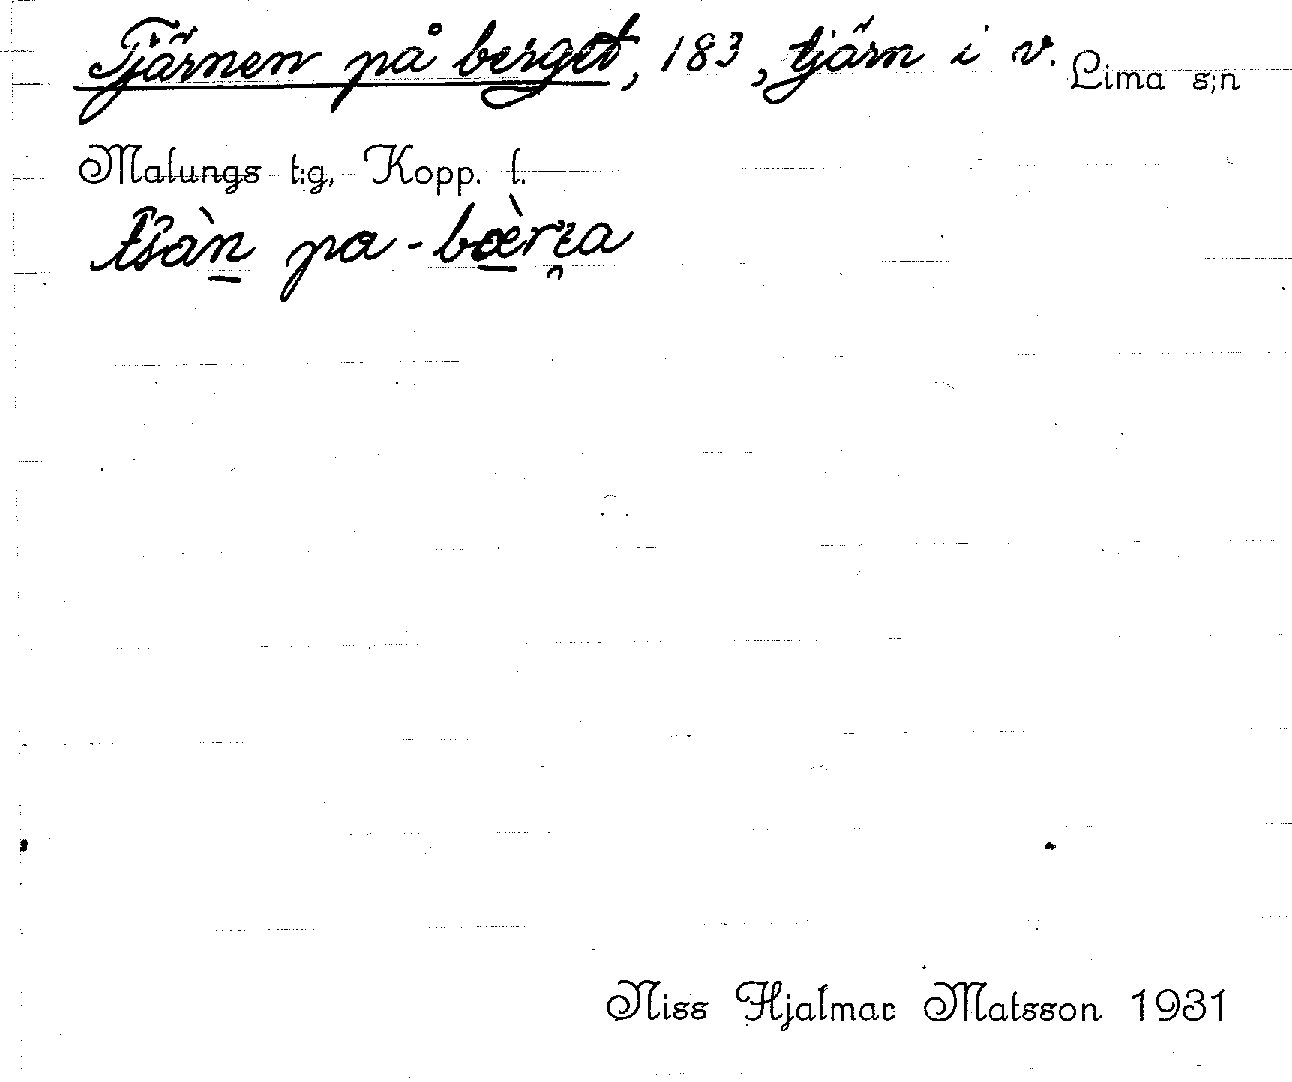 Tjärnen på berget, 183, tjärn i v. Lima s;n
Malungs t:g, Kopp. l.
pa-
Niss Hjalmar Matsson 1931